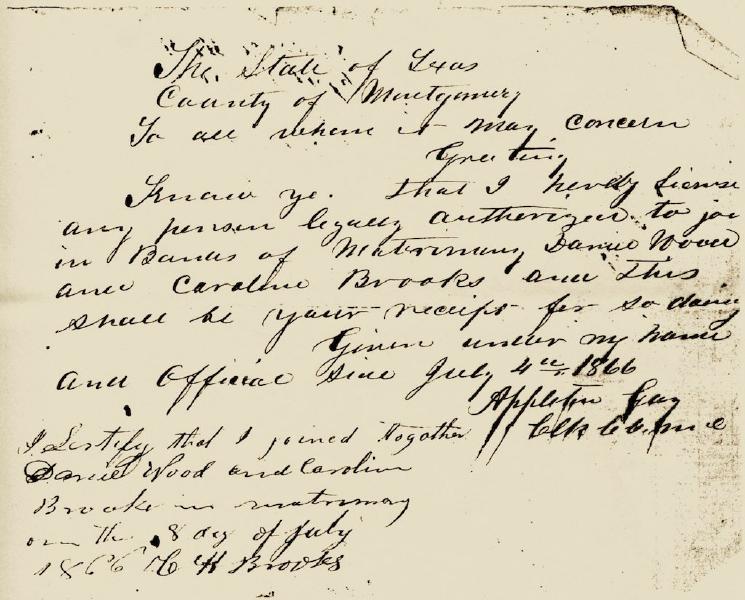 The State of Texas
County of Montgomery
To all whom it may concern
Greeting
Know ye. that I herby licens
any person legally authorized to joi
in Bands of Matrimony Daniel Wood
and Caroline Brooks and this
shall be your receipt for so doing
Given under my hand
and official Seal July 4th 1866
Appleton Gay
Clk
I Certify that I joined together
Daniel Wood and Caroline
Brooks in matrimony
on the 8 day of July
1866 H Brooks